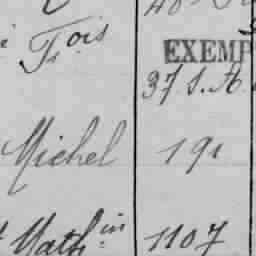 Fois
EXEMP
37 S. A
Michel 191
Mathin 1107